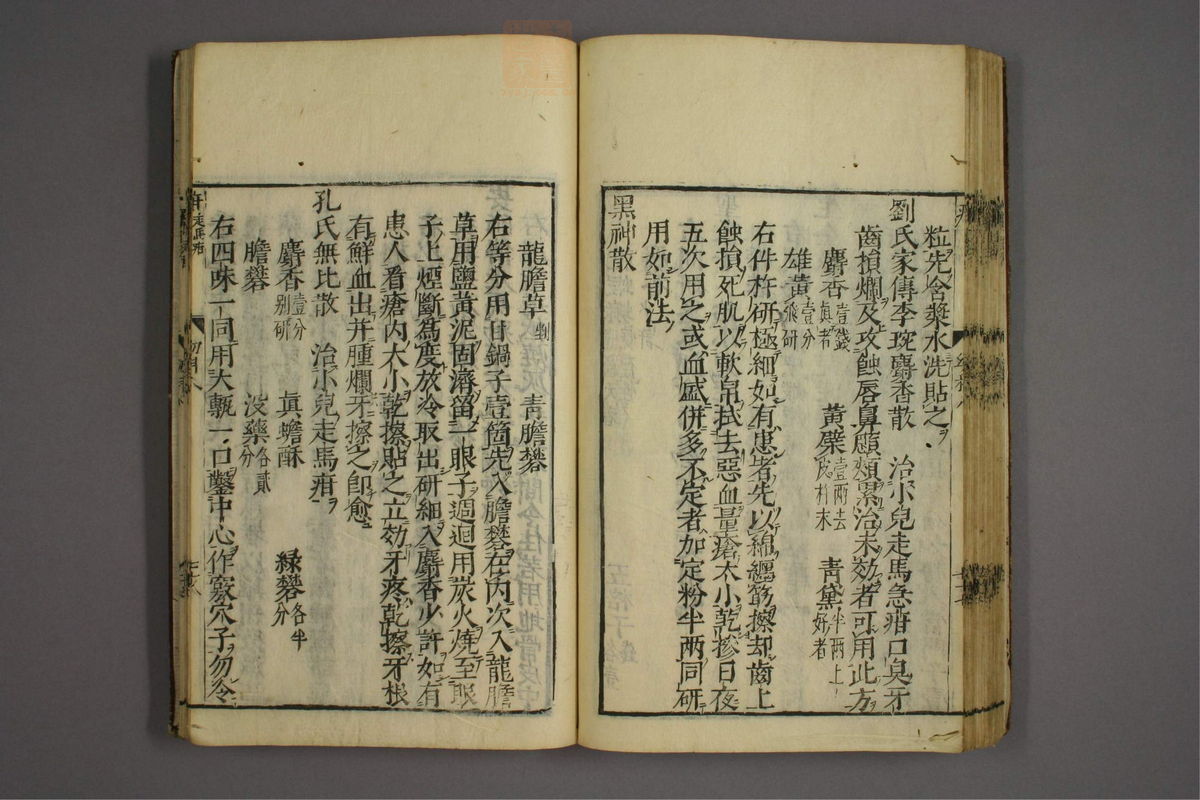 粒先含漿水洗貼之
劉氏家傳李琬麝香散 治小兒走馬急疳口臭牙
齒損爛及攻蝕唇鼻頤頰累治未効者可用此方
麝香壹錢真者 黄蘗壹兩去皮杵末 青黛半兩上好者
雄黄壹分飛研
右件杵研極細如有患者先以綿纏筯擦却齒上
蝕損死肌以軟帛拭去惡血量瘡大小乾摻日夜
五次用之或血盛併多不定者加定粉半兩同研
用如前法
黑神散
龍膽草剉 青膽礬
右等分用甘鍋子壹箇先入膽礬在内次入龍膽
草用鹽黄泥固濟留一眼子週迴用炭火燒至眼
子上煙斷為度放冷取出研細入麝香少許如有
患人看瘡内大小乾擦貼之立効牙疼乾擦牙根
有鮮血出并腫爛牙擦之卽愈
孔氏無比散 治小兒走馬疳
麝香壹分别研 真蟾酥 緑礬各半分
膽礬 没藥各貳分
右四味一同用大甎一口鑿中心作窽穴子勿令